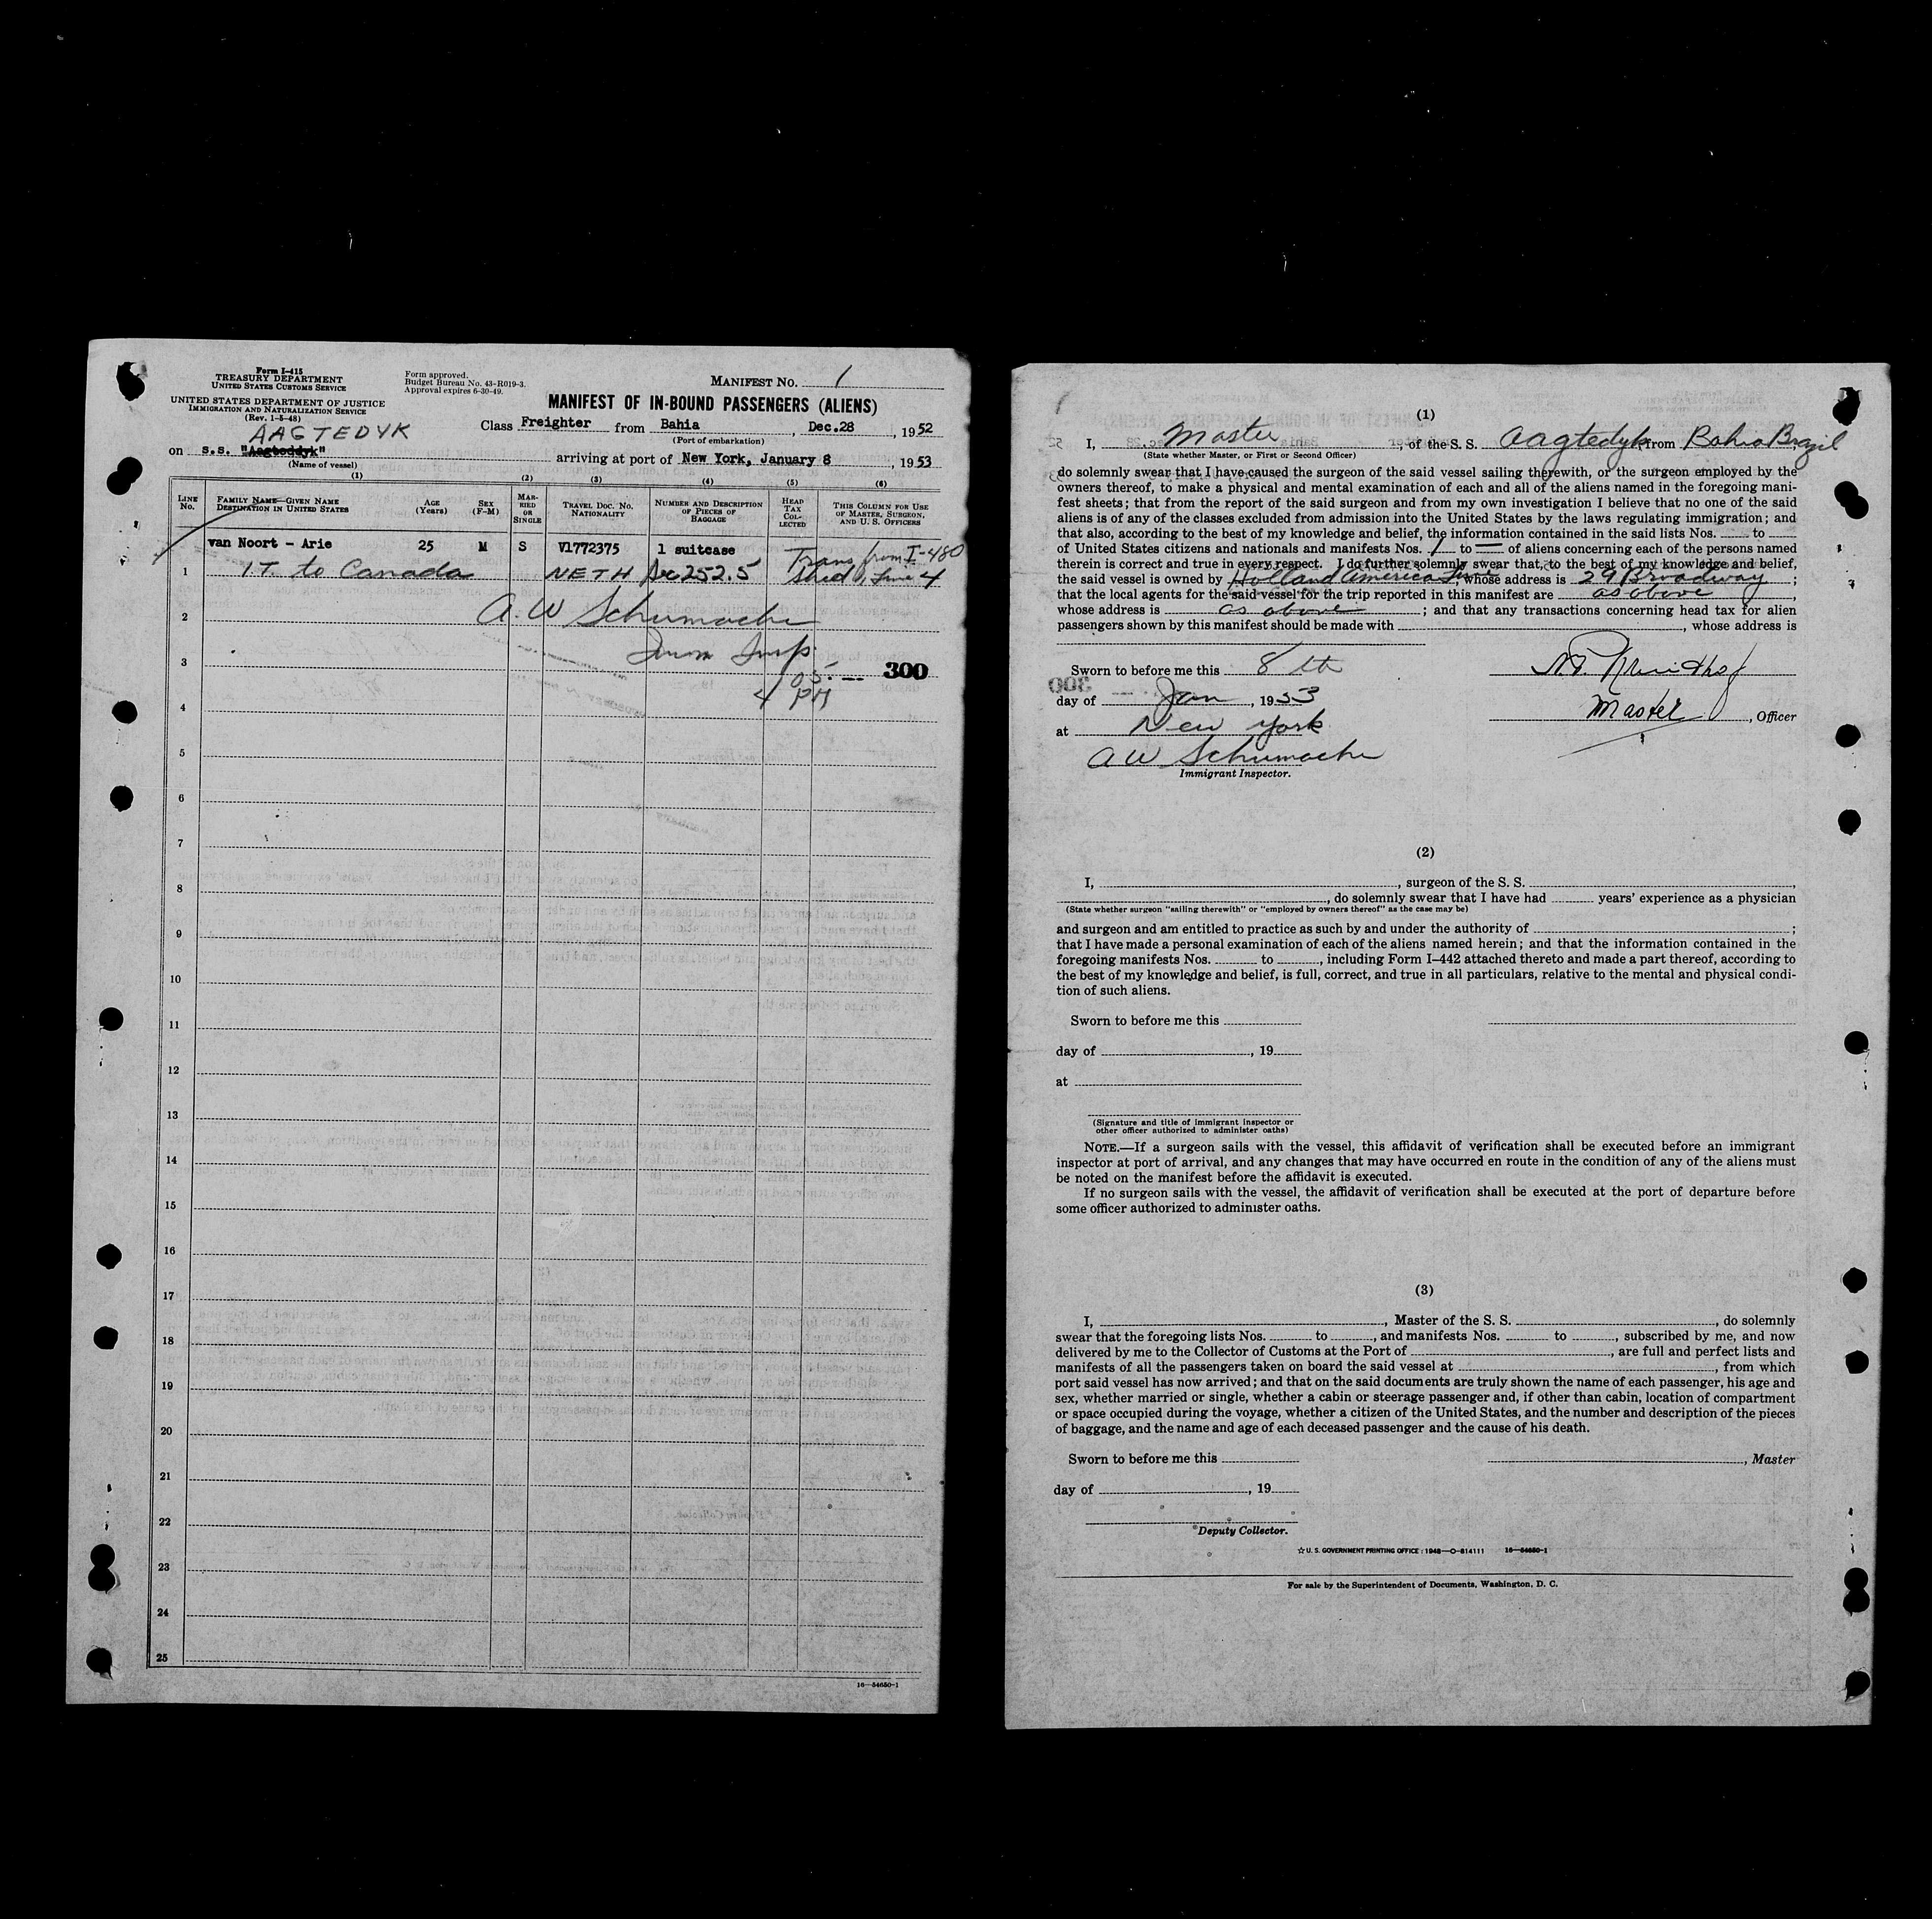 Form I-415
TREASURY DEPARTMENT
UNITED STATES CUSTOMS SERVICE
UNITED STATES DEPARTMENT OF JUSTICE
IMMIGRATION AND NATURALIZATION SERVICE
(Rev. 1-5-48)
Form approved.
Budget Bureau No. 43-R019-3.
Approval expires 6-30-49.
MANIFEST NO. 1
MANIFEST OF IN-BOUND PASSENGERS (ALIENS)
AAGTEDYK
Class Freighter from Bahia, Dec.28, 1952
(Port of embarkation)
on s.s. "Aagteddyk"
(Name of vessel)
arriving at port of New York, January 8, 1953
(1) (2) (3) (4) (5) (6)
LINE No.
FAMILY NAME—GIVEN NAME
DESTINATION IN UNITED STATES
AGE (Years)
SEX (F-M)
MARRIED OR SINGLE
TRAVEL DOC. NO. NATIONALITY
NUMBER AND DESCRIPTION OF PIECES OF BAGGAGE
HEAD TAX COLLECTED
THIS COLUMN FOR USE OF MASTER, SURGEON, AND U. S. OFFICERS
van Noort - Arie 25 M S V1772375 1 suitcase Trans from I-480
1 I.T. to Canada NETH Sec 252.5 Line 4
2 A. W Schumacher
3 Imm Insp. 300
4 4 PM
5
6
7
8
9
10
11
12
13
14
15
16
17
18
19
20
21
22
23
24
25
16—54650-1
(1)
I, Master, of the S. S. Aagtedyk, from Bahia Brazil
(State whether Master, or First or Second Officer)
do solemnly swear that I have caused the surgeon of the said vessel sailing therewith, or the surgeon employed by the
owners thereof, to make a physical and mental examination of each and all of the aliens named in the foregoing mani-
fest sheets; that from the report of the said surgeon and from my own investigation I believe that no one of the said
aliens is of any of the classes excluded from admission into the United States by the laws regulating immigration; and
that also, according to the best of my knowledge and belief, the information contained in the said lists Nos. ____ to ____
of United States citizens and nationals and manifests Nos. 1 to — of aliens concerning each of the persons named
therein is correct and true in every respect. I do further solemnly swear that, to the best of my knowledge and belief,
the said vessel is owned by Holland America Line, whose address is 29 Broadway;
that the local agents for the said vessel for the trip reported in this manifest are as above,
whose address is as above; and that any transactions concerning head tax for alien
passengers shown by this manifest should be made with ____, whose address is
Sworn to before me this 8th
day of Jan, 1953
Master, Officer
at New York
A W Schumacher
Immigrant Inspector.
(2)
I, ____, surgeon of the S. S. ____,
____, do solemnly swear that I have had ____ years' experience as a physician
(State whether surgeon "sailing therewith" or "employed by owners thereof" as the case may be)
and surgeon and am entitled to practice as such by and under the authority of ____;
that I have made a personal examination of each of the aliens named herein; and that the information contained in the
foregoing manifests Nos. ____ to ____, including Form I-442 attached thereto and made a part thereof, according to
the best of my knowledge and belief, is full, correct, and true in all particulars, relative to the mental and physical condi-
tion of such aliens.
Sworn to before me this ____
day of ____, 19__
at ____
(Signature and title of immigrant inspector or
other officer authorized to administer oaths)
NOTE.—If a surgeon sails with the vessel, this affidavit of verification shall be executed before an immigrant
inspector at port of arrival, and any changes that may have occurred en route in the condition of any of the aliens must
be noted on the manifest before the affidavit is executed.
If no surgeon sails with the vessel, the affidavit of verification shall be executed at the port of departure before
some officer authorized to administer oaths.
(3)
I, ____, Master of the S. S. ____, do solemnly
swear that the foregoing lists Nos. ____ to ____, and manifests Nos. ____ to ____, subscribed by me, and now
delivered by me to the Collector of Customs at the Port of ____, are full and perfect lists and
manifests of all the passengers taken on board the said vessel at ____, from which
port said vessel has now arrived; and that on the said documents are truly shown the name of each passenger, his age and
sex, whether married or single, whether a cabin or steerage passenger and, if other than cabin, location of compartment
or space occupied during the voyage, whether a citizen of the United States, and the number and description of the pieces
of baggage, and the name and age of each deceased passenger and the cause of his death.
Sworn to before me this ____
____, Master
day of ____, 19__
Deputy Collector.
☆ U. S. GOVERNMENT PRINTING OFFICE : 1948—O-814111 16—54650-1
For sale by the Superintendent of Documents, Washington, D. C.